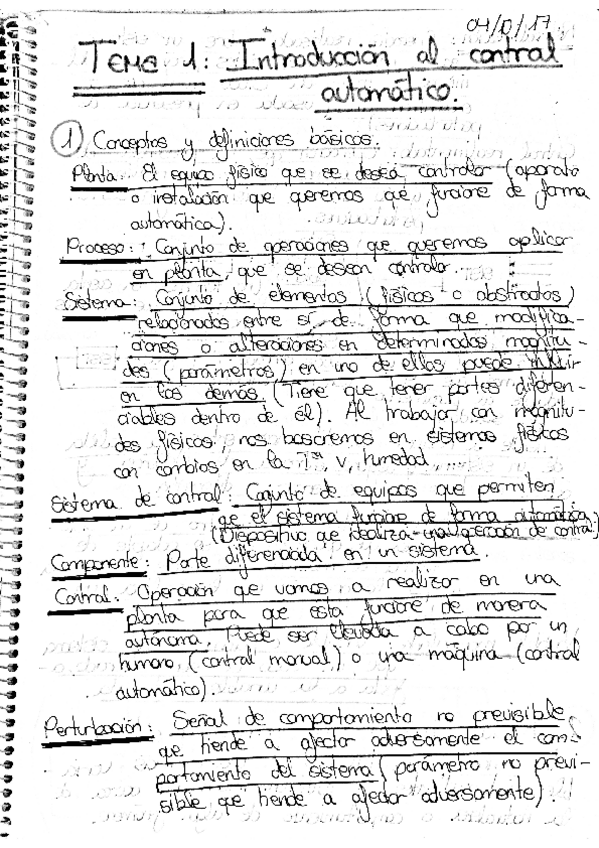 04/0/17
Tema 1: Introducción al control
automático.
1 Conceptos y definiciones básicos.
Planta: El equipo físico que se desea controlar (aparato
o instalación que queremos que funcione de forma
automática).
Proceso: Conjunto de operaciones que queremos aplicar
en planta, que se desean controlar.
Sistema: Conjunto de elementos (físicos o abstractos)
relacionados entre sí, de forma que modifica-
ciones o alteraciones en determinadas magnitu-
des (parámetros) en uno de ellos puede influir
en los demás. (Tiene que tener partes diferen-
ciables dentro de él). Al trabajar con magnitu-
des físicas, nos basaremos en sistemas físicos
con cambios en la Tª, v, humedad,
Sistema de control: Conjunto de equipos que permiten
que el sistema funcione de forma automática
(Dispositivo que realiza una operación de control)
Componente: Parte diferenciada en un sistema.
Control: Operación que vamos a realizar en una
planta para que esta funcione de manera
autónoma. Puede ser llevada a cabo por un
humano, (control manual) o una máquina (control
automático).
Perturbación: Señal de comportamiento no previsible,
que tiende a afectar adversamente el com-
portamiento del sistema (parámetro no previ-
sible que tiende a afectar adversamente).